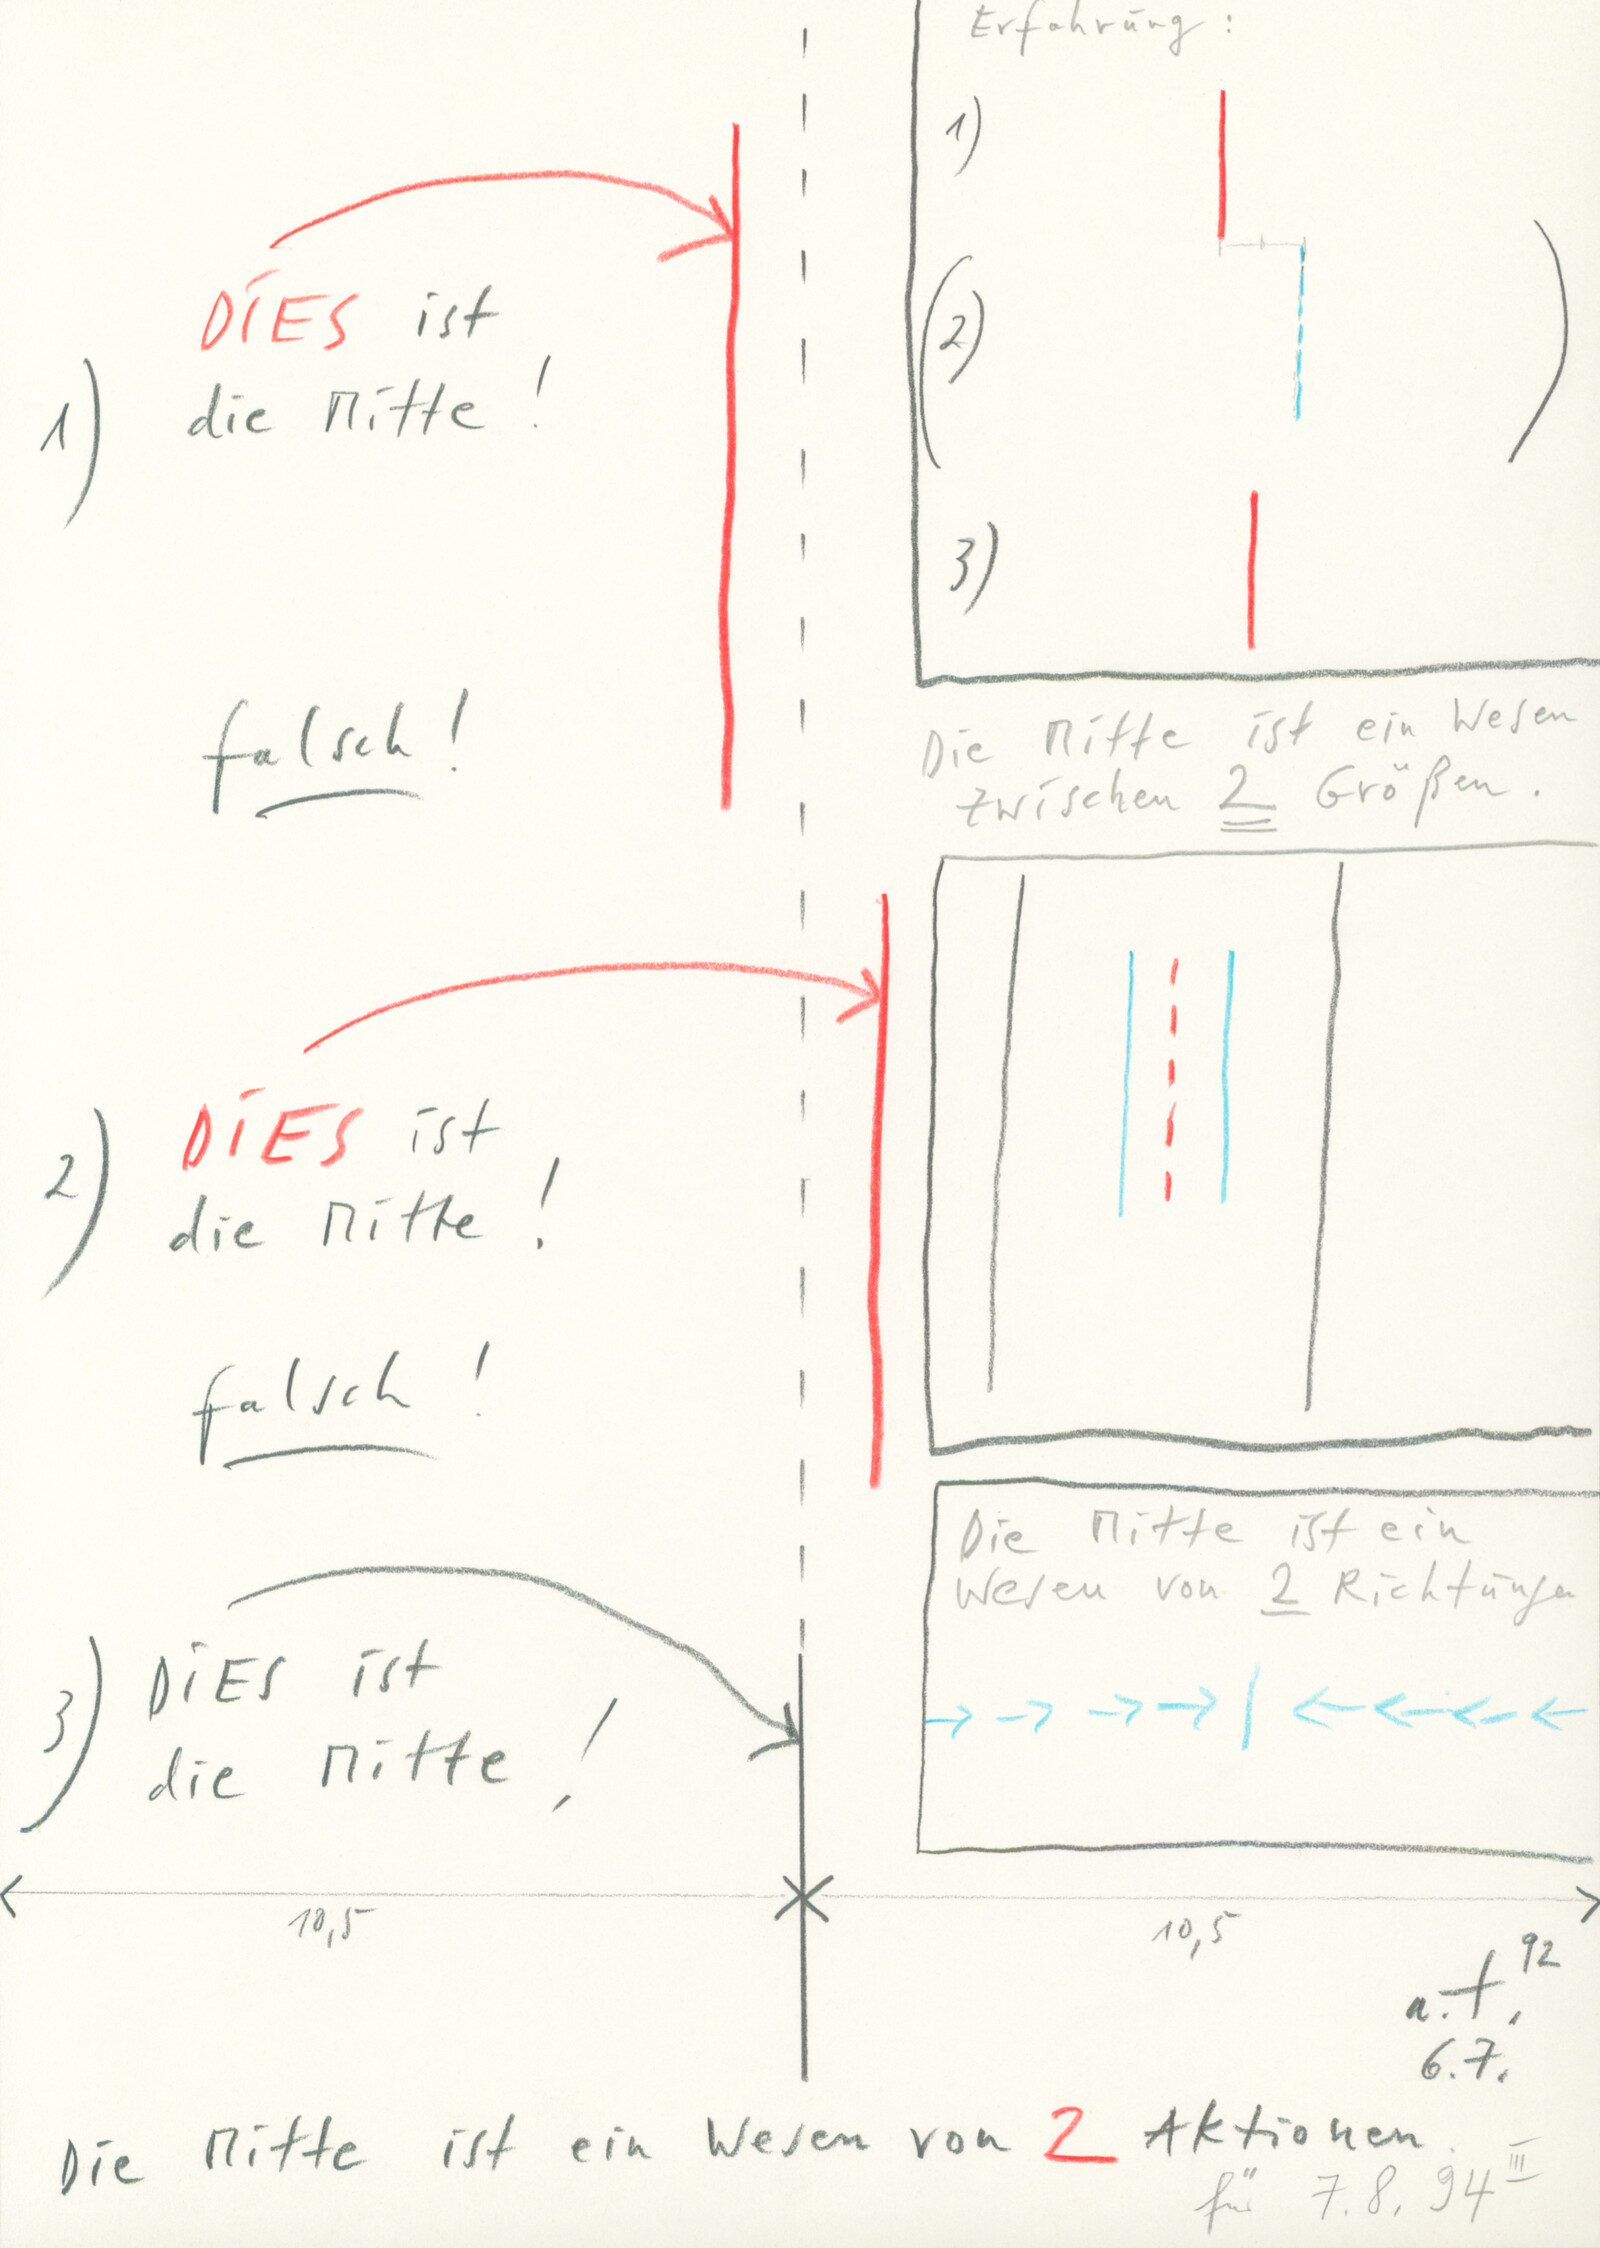 Erfahrung:
1)
(2))
3)
DiES ist
1) die Mitte!
falsch!
Die Mitte ist ein Wesen
zwischen 2 Größen.
DiES ist
2) die Mitte!
falsch!
Die Mitte ist ein
Wesen von 2 Richtungen
DiES ist
3) die Mitte!
10,5 10,5
a.t. 92
6.7.
Die Mitte ist ein Wesen von 2 Aktionen.
für 7.8.94 III